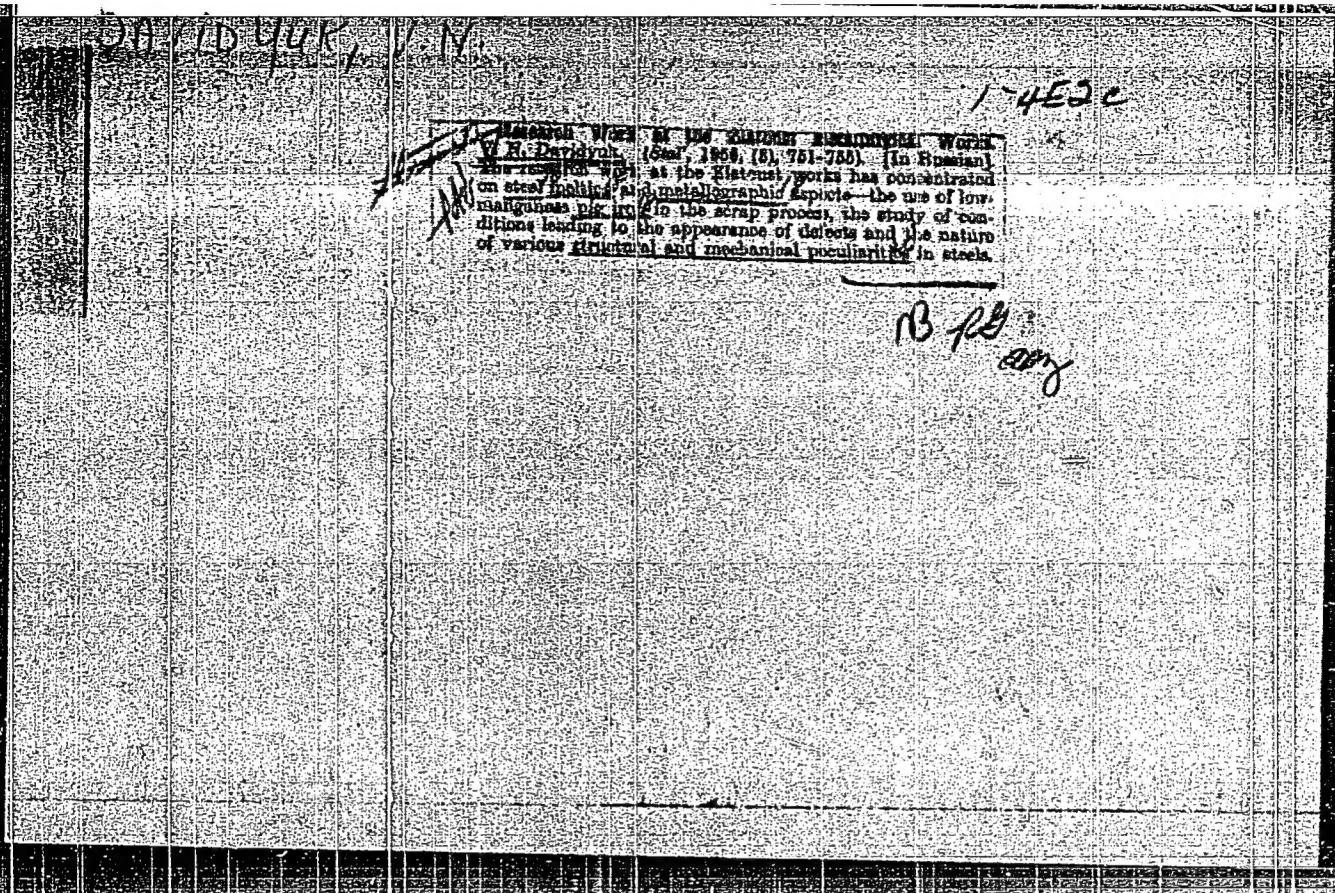 DAVIDYUK, V.N.
1-4E2c
Research Work at the Zlatoust Works.
V. N. Davidyuk. (Stal', 1956, (8), 751-755). [In Russian]
The research work at the Zlatoust works has concentrated
on steel melting and metallographic aspects—the use of low-
manganese pig iron in the scrap process, the study of con-
ditions leading to the appearance of defects and the nature
of various structural and mechanical peculiarities in steels.